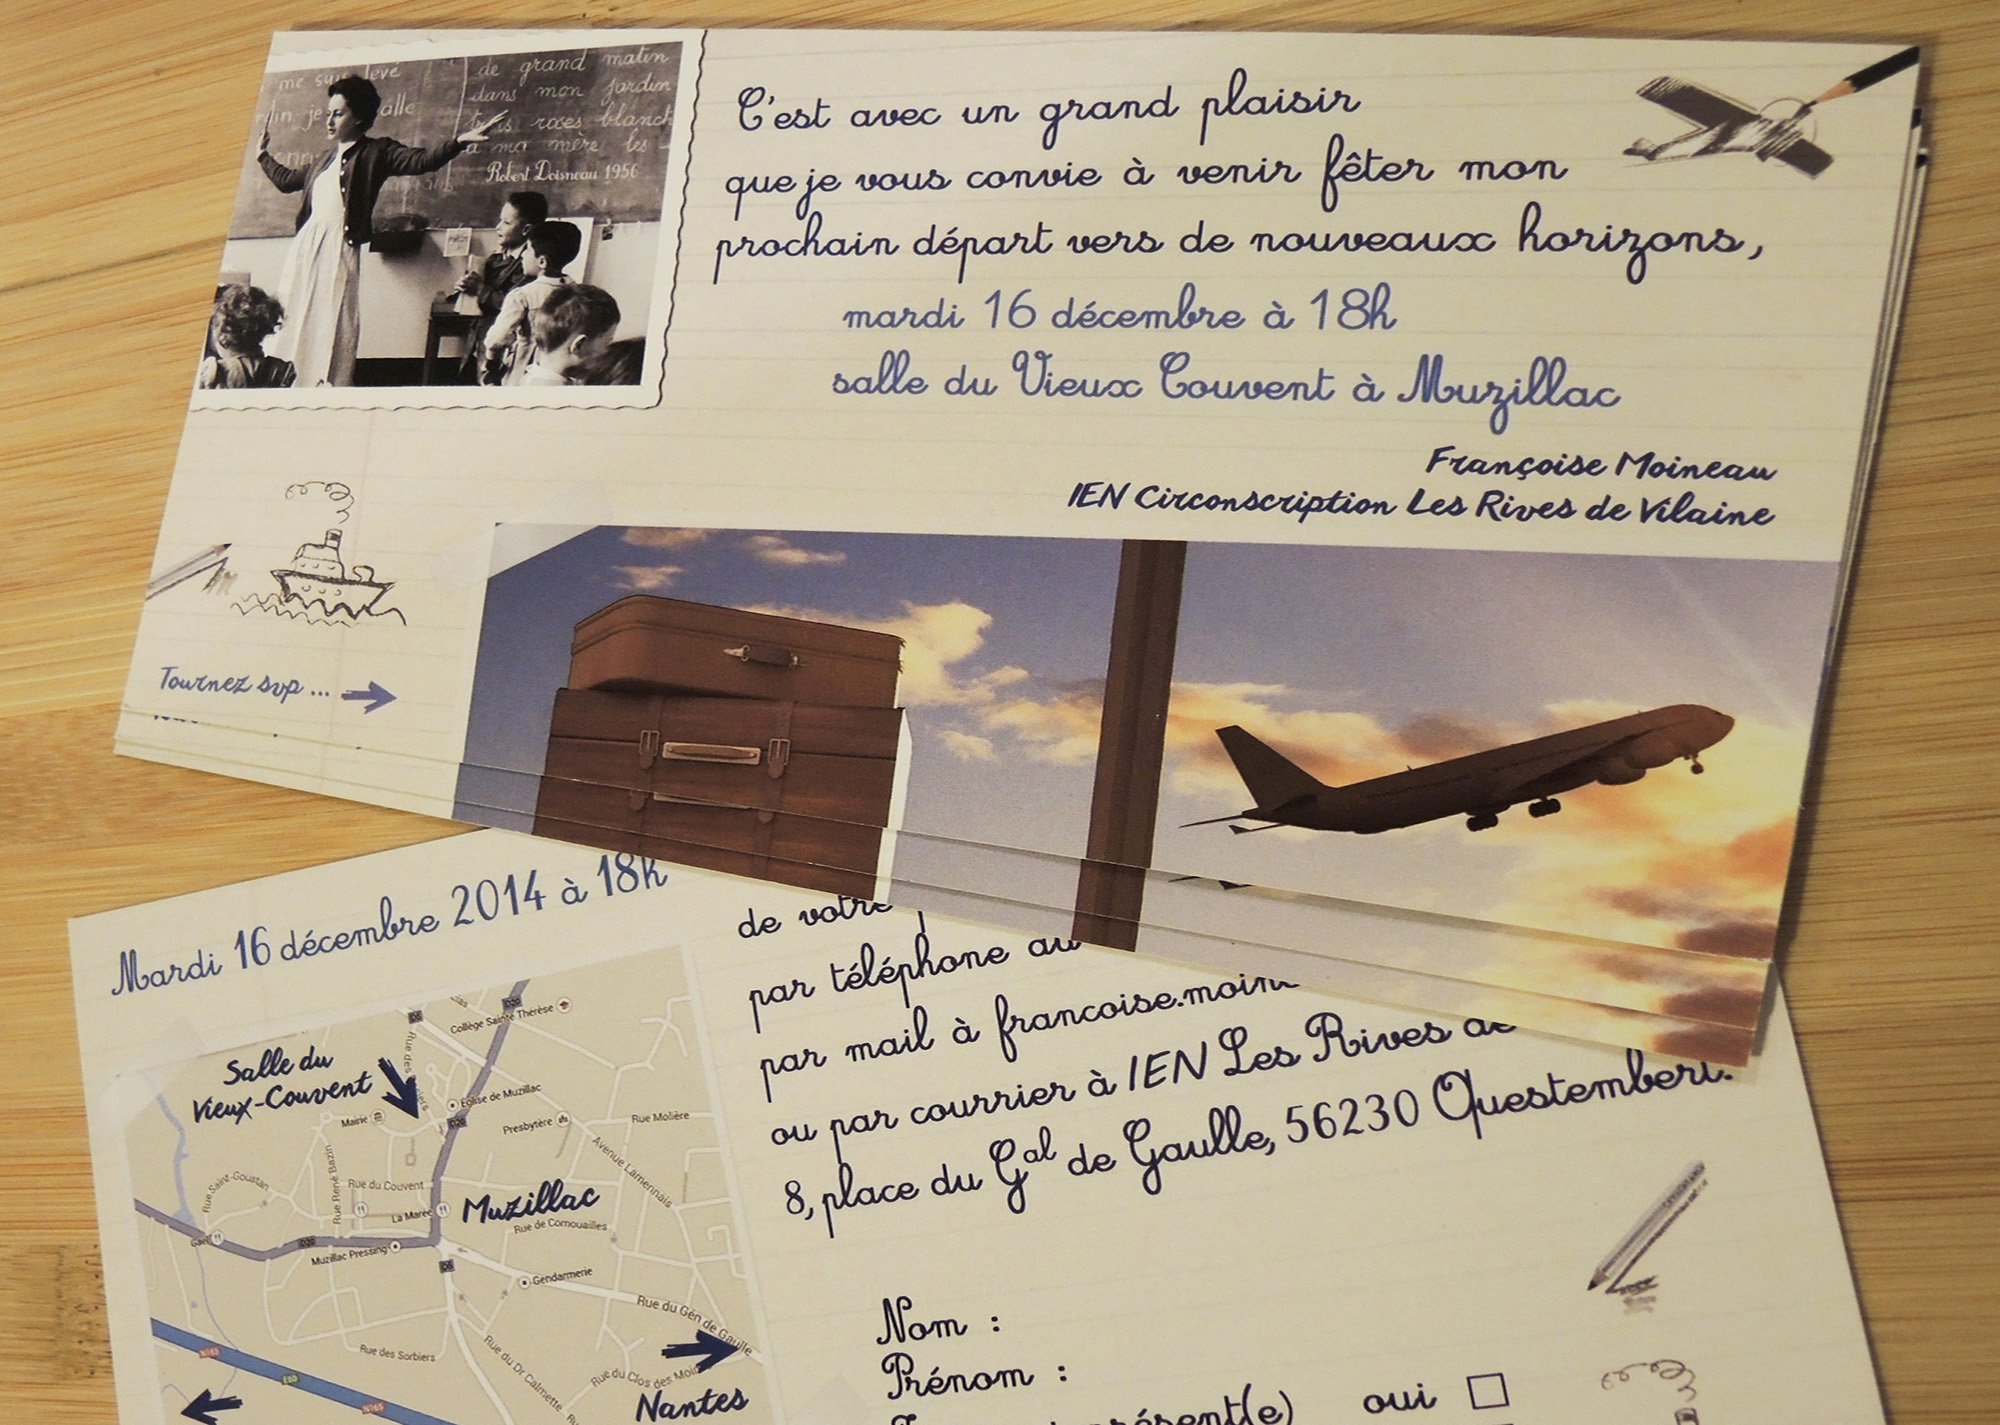 me suis levé
alle
de grand matin
dans mon jardin
roses blanch
a ma mère les
Robert Doisneau 1956
C'est avec un grand plaisir
que je vous convie à venir fêter mon
prochain départ vers de nouveaux horizons,
mardi 16 décembre à 18h
salle du Vieux Couvent à Muzillac
Françoise Moineau
IEN Circonscription Les Rives de Vilaine
Tournez svp ...
Mardi 16 décembre 2014 à 18h
Salle du
Vieux-Couvent
D5
D20
Collège Sainte Thérèse
Rue des
Mairie
Église de Muzillac
D20
Presbytère
Rue Molière
Avenue Lamennais
Rue Saint-Goustan
Rue René Bazin
Rue du Couvent
La Marée
Muzillac
Rue de Cornouailles
D20
Muzillac Pressing
D5
Gendarmerie
Rue du Gén de Gaulle
Rue des Sorbiers
Rue du Dr Calmette
Rue du Clos des
N165
E60
N165
Nantes
de votre
par téléphone au
par mail à francoise.moin
ou par courrier à IEN Les Rives de
8, place du Gal de Gaulle, 56230 Questembert.
Nom :
Prénom :
présent(e) oui